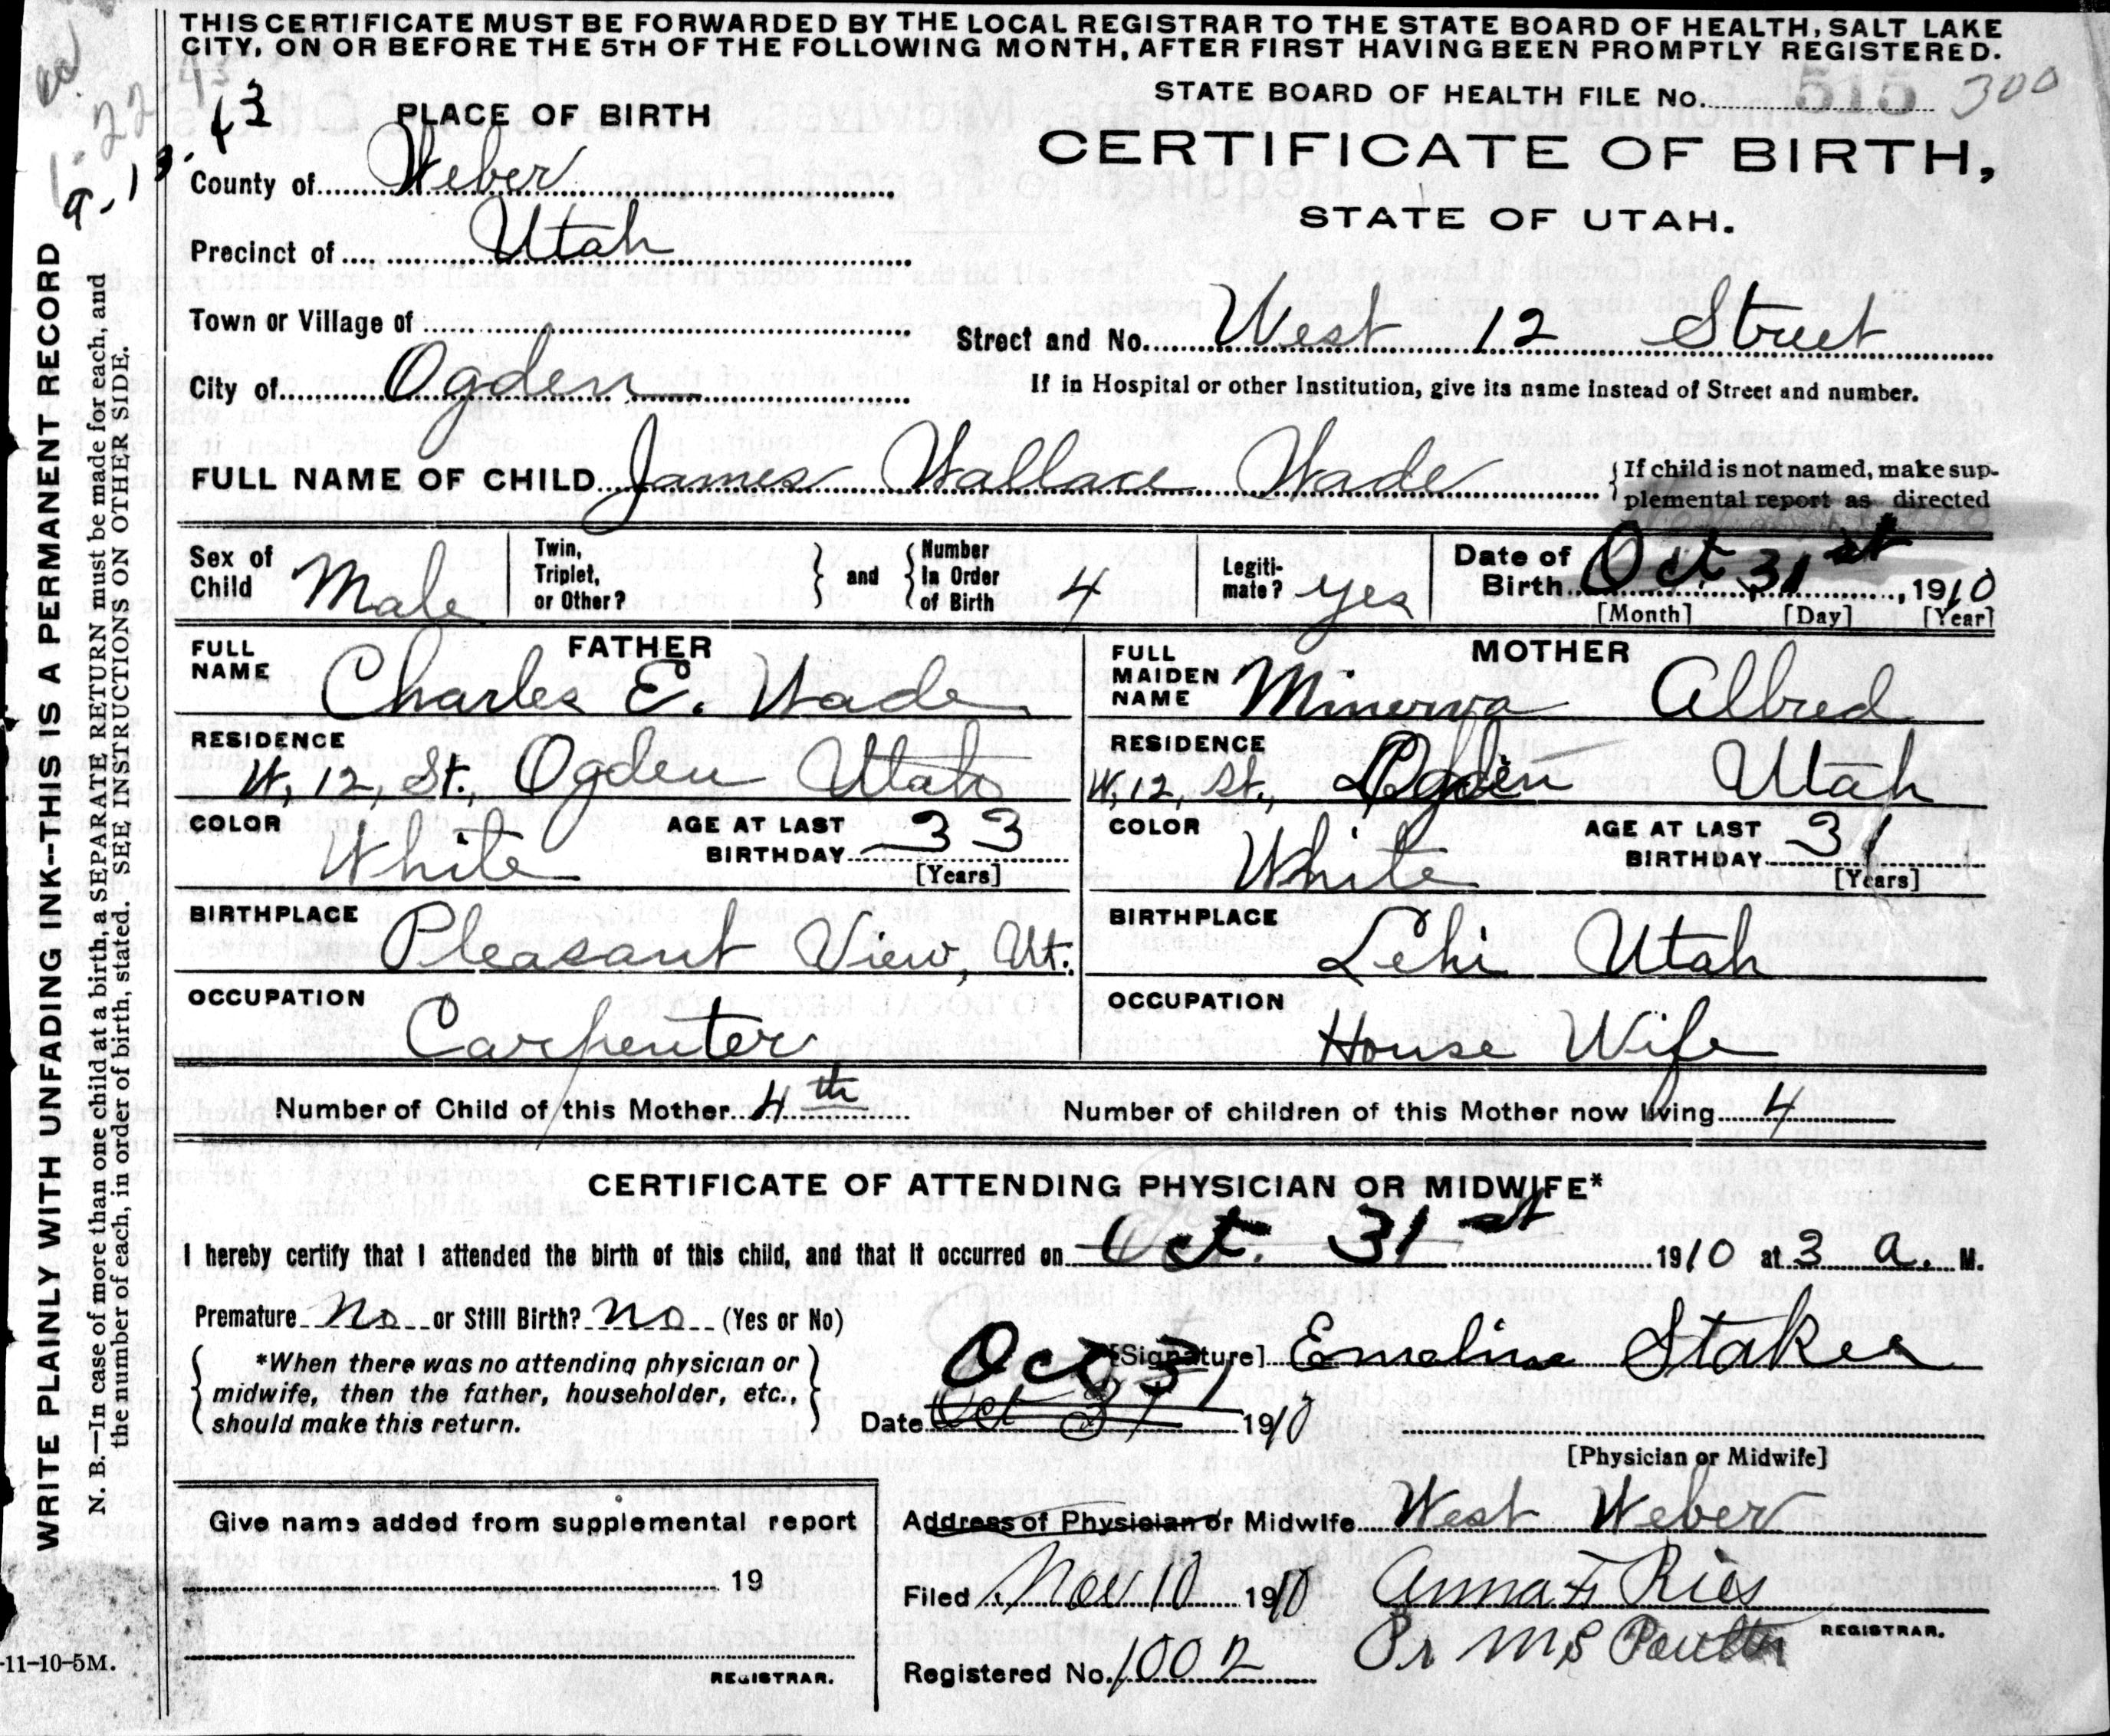 THIS CERTIFICATE MUST BE FORWARDED BY THE LOCAL REGISTRAR TO THE STATE BOARD OF HEALTH, SALT LAKE
CITY, ON OR BEFORE THE 5TH OF THE FOLLOWING MONTH, AFTER FIRST HAVING BEEN PROMPTLY REGISTERED.
STATE BOARD OF HEALTH FILE No. 515 300
43
PLACE OF BIRTH
CERTIFICATE OF BIRTH,
STATE OF UTAH.
County of Weber
Precinct of Utah
Town or Village of
Street and No. West 12 Street
City of Ogden
If in Hospital or other Institution, give its name instead of Street and number.
FULL NAME OF CHILD James Wallace Wade
If child is not named, make sup-
plemental report as directed
Sex of Child Male
Twin, Triplet, or Other? and Number In Order of Birth 4
Legiti-mate? yes
Date of Birth Oct 31st, 1910
[Month] [Day] [Year]
FATHER
FULL NAME Charles E. Wade
RESIDENCE W, 12, St., Ogden Utah
COLOR White AGE AT LAST BIRTHDAY 33
[Years]
BIRTHPLACE Pleasant View, Ut.
OCCUPATION Carpenter
MOTHER
FULL MAIDEN NAME Minerva Allred
RESIDENCE W, 12, St., Ogden Utah
COLOR White AGE AT LAST BIRTHDAY 31
[Years]
BIRTHPLACE Lehi Utah
OCCUPATION House Wife
Number of Child of this Mother 4th
Number of children of this Mother now living 4
CERTIFICATE OF ATTENDING PHYSICIAN OR MIDWIFE*
I hereby certify that I attended the birth of this child, and that it occurred on Oct. 31st 1910 at 3 a. M.
Premature no or Still Birth? no (Yes or No)
*When there was no attending physician or
midwife, then the father, householder, etc.,
should make this return.
Oct 31
[Signature] Emeline Staker
Date Oct 31 1910
[Physician or Midwife]
Give name added from supplemental report
19
REGISTRAR.
Address of Physician or Midwife West Weber
Filed Nov 10 1910 Anna F Ries
REGISTRAR.
Pr M S Poulter
Registered No. 1002
WRITE PLAINLY WITH UNFADING INK--THIS IS A PERMANENT RECORD
N. B.—In case of more than one child at a birth, a SEPARATE RETURN must be made for each, and
the number of each, in order of birth, stated. SEE INSTRUCTIONS ON OTHER SIDE.
-11-10-5M.